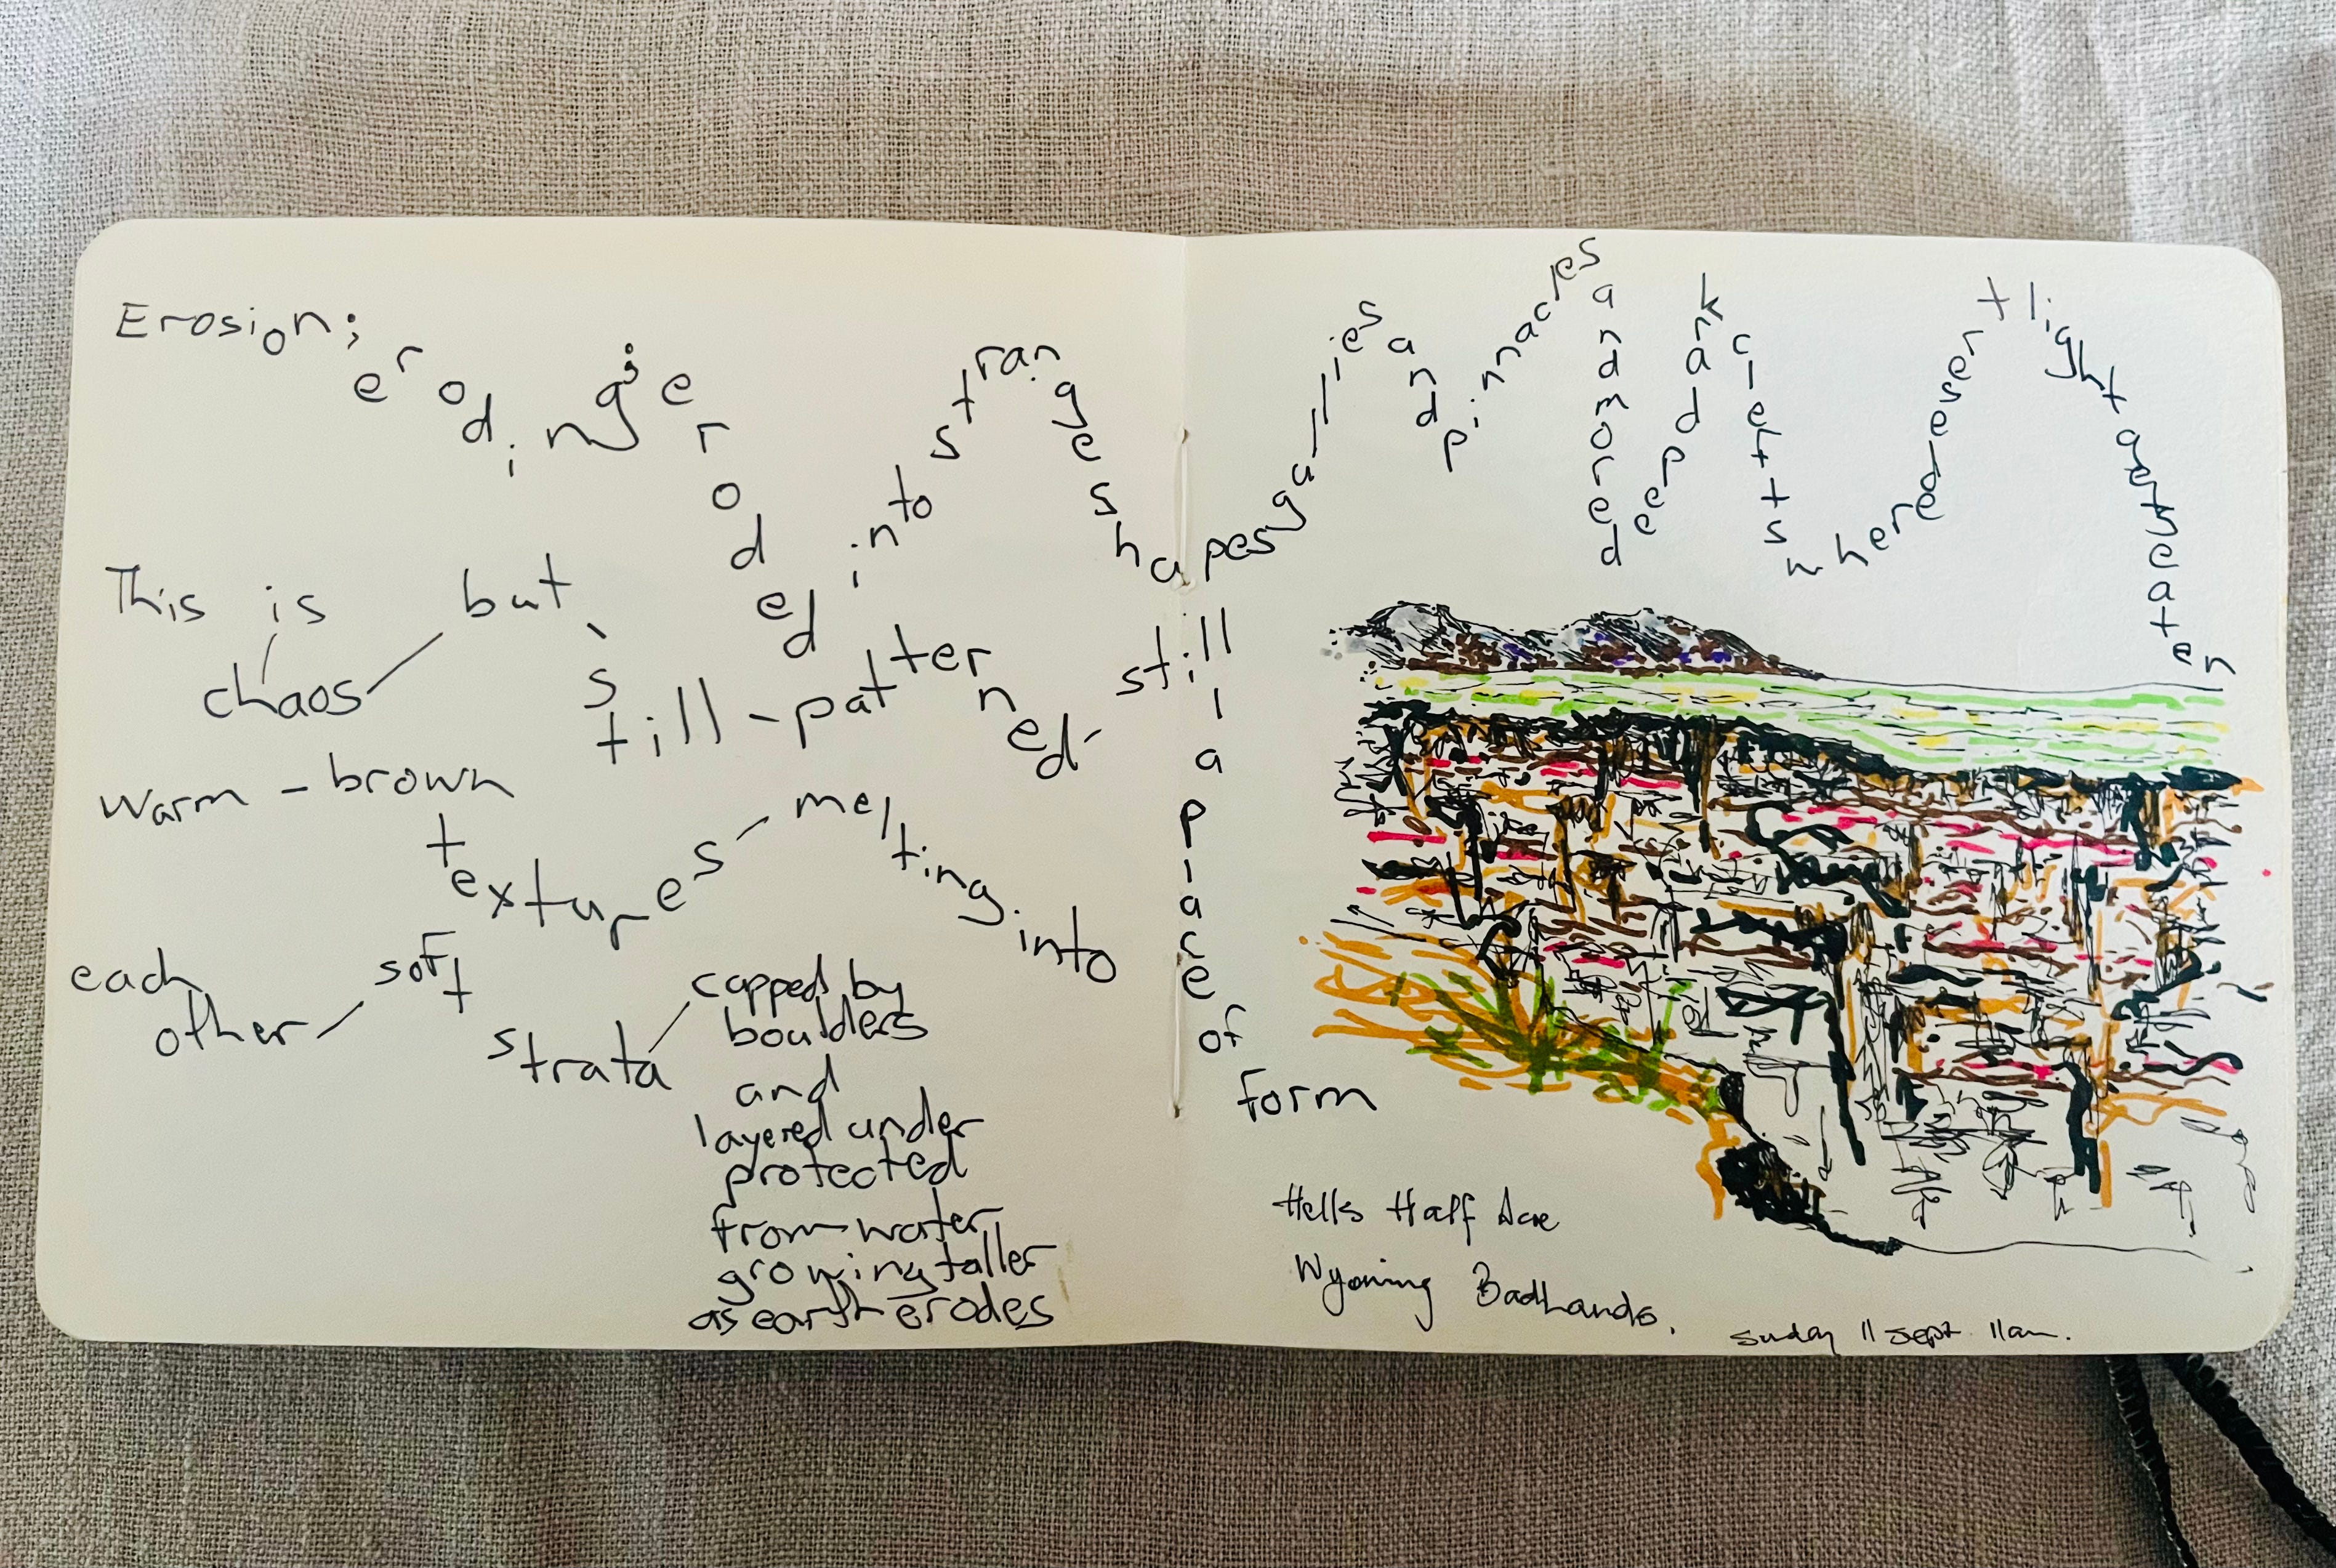 Erosion; eroding; eroded into strange shapes gullies and pinnacles and more deep dark clefts where desert light gets eaten
This is chaos but still-patterned- still - a place of form
Warm - brown textures - melting into
each other / soft strata / capped by
boulders
and
layered under
protected
from water
growing taller
as earth erodes
Hells Half Acre
Wyoming Badlands.
Sunday 11 Sept. 11am.